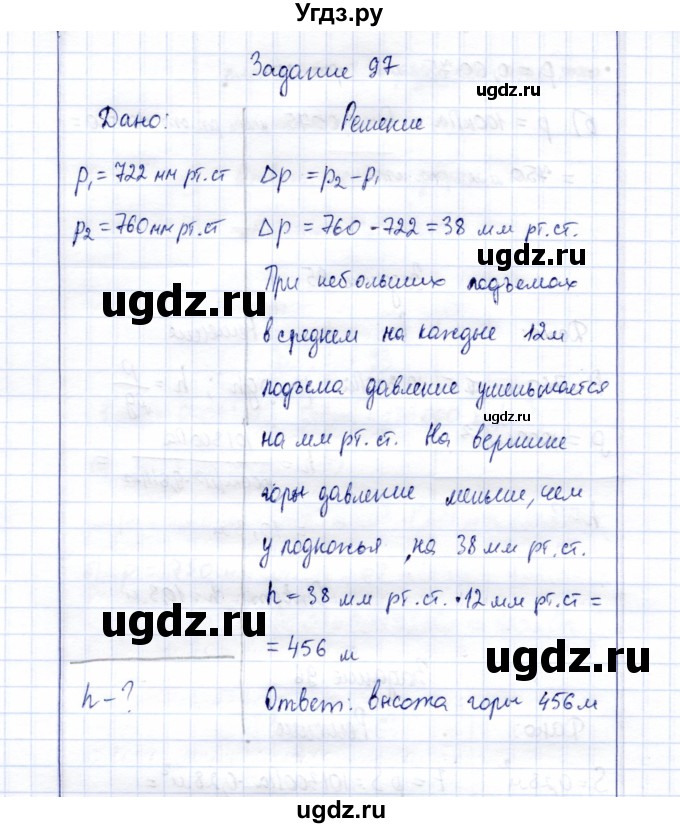 Угдз.ру
Задание 97
ugdz.ru
Дано:
Решение
p₁ = 722 мм рт.ст
Δp = p₂ - p₁
p₂ = 760 мм рт.ст
Δp = 760 - 722 = 38 мм рт.ст.
При небольших подъемах
ugdz.ru
ugdz.ru
в среднем на каждые 12м
подъема давление уменьшается
ugdz.ru
на мм рт.ст. На вершине
горы давление меньше, чем
у подножья, на 38 мм рт.ст.
h = 38 мм рт.ст. · 12 мм рт.ст =
ugdz.ru
= 456 м
ugdz.ru
h - ?
Ответ: высота горы 456м
ugdz.ru
ugdz.ru